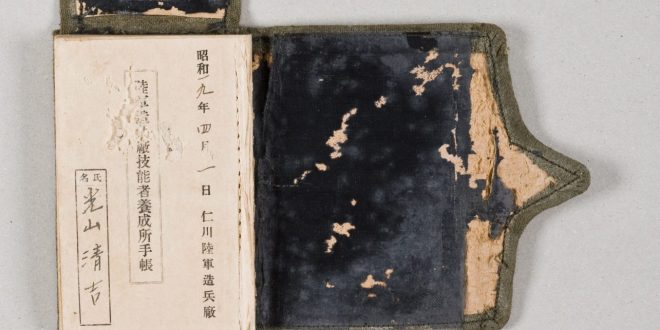 昭和一九年四月一日 仁川陸軍造兵廠
陸軍造廠技能者養成所手帳
氏名
光山清吉